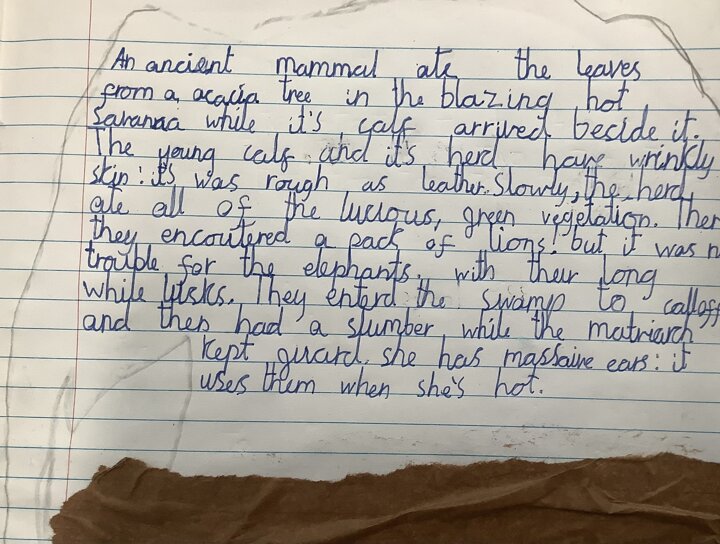 An ancient mammal ate the leaves
from a acacia tree in the blazing hot
Savanaa while it's calf arrived beside it.
The young calf and it's herd have wrinkly
skin: it's was rough as leather. Slowly, the herd
ate all of the lucious, green vegetation. Then
they encoutered a pack of lions! but it was n
trouble for the elephants. with their long
while tusks. They enterd the swamp to calloff
and then had a slumber while the matriarch
kept guard. she has massaive ears: it
uses them when she's hot.